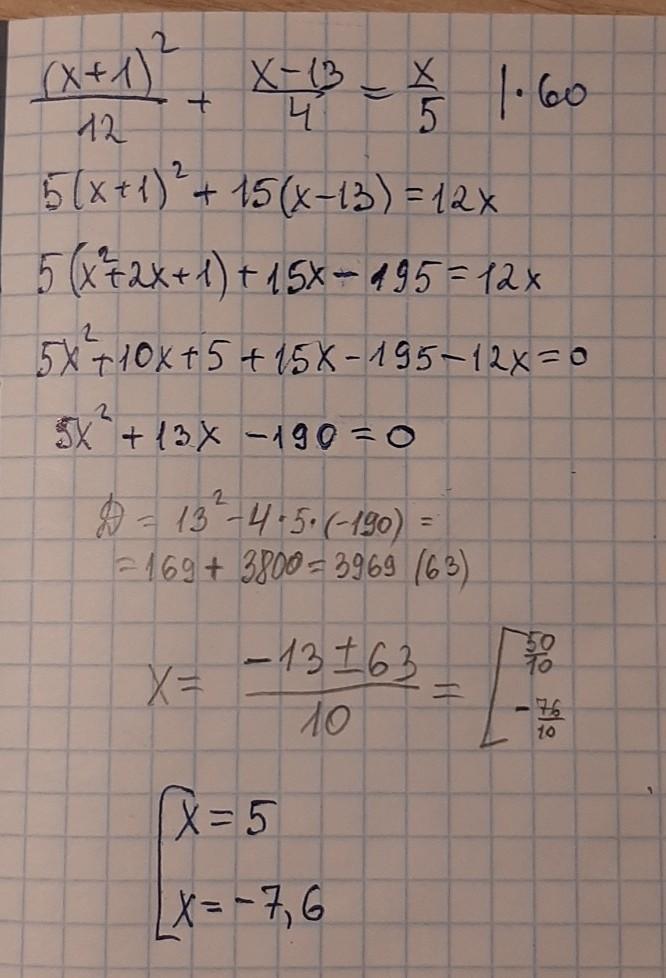 (x+1)²/12 + x-13/4 = x/5 |·60
5(x+1)² + 15(x-13) = 12x
5(x²+2x+1) + 15x - 195 = 12x
5x² + 10x + 5 + 15x - 195 - 12x = 0
5x² + 13x - 190 = 0
D = 13² - 4·5·(-190) =
= 169 + 3800 = 3969 (63)
x = -13 ± 63/10 = [ 50/10
-76/10
[ x = 5
x = -7,6